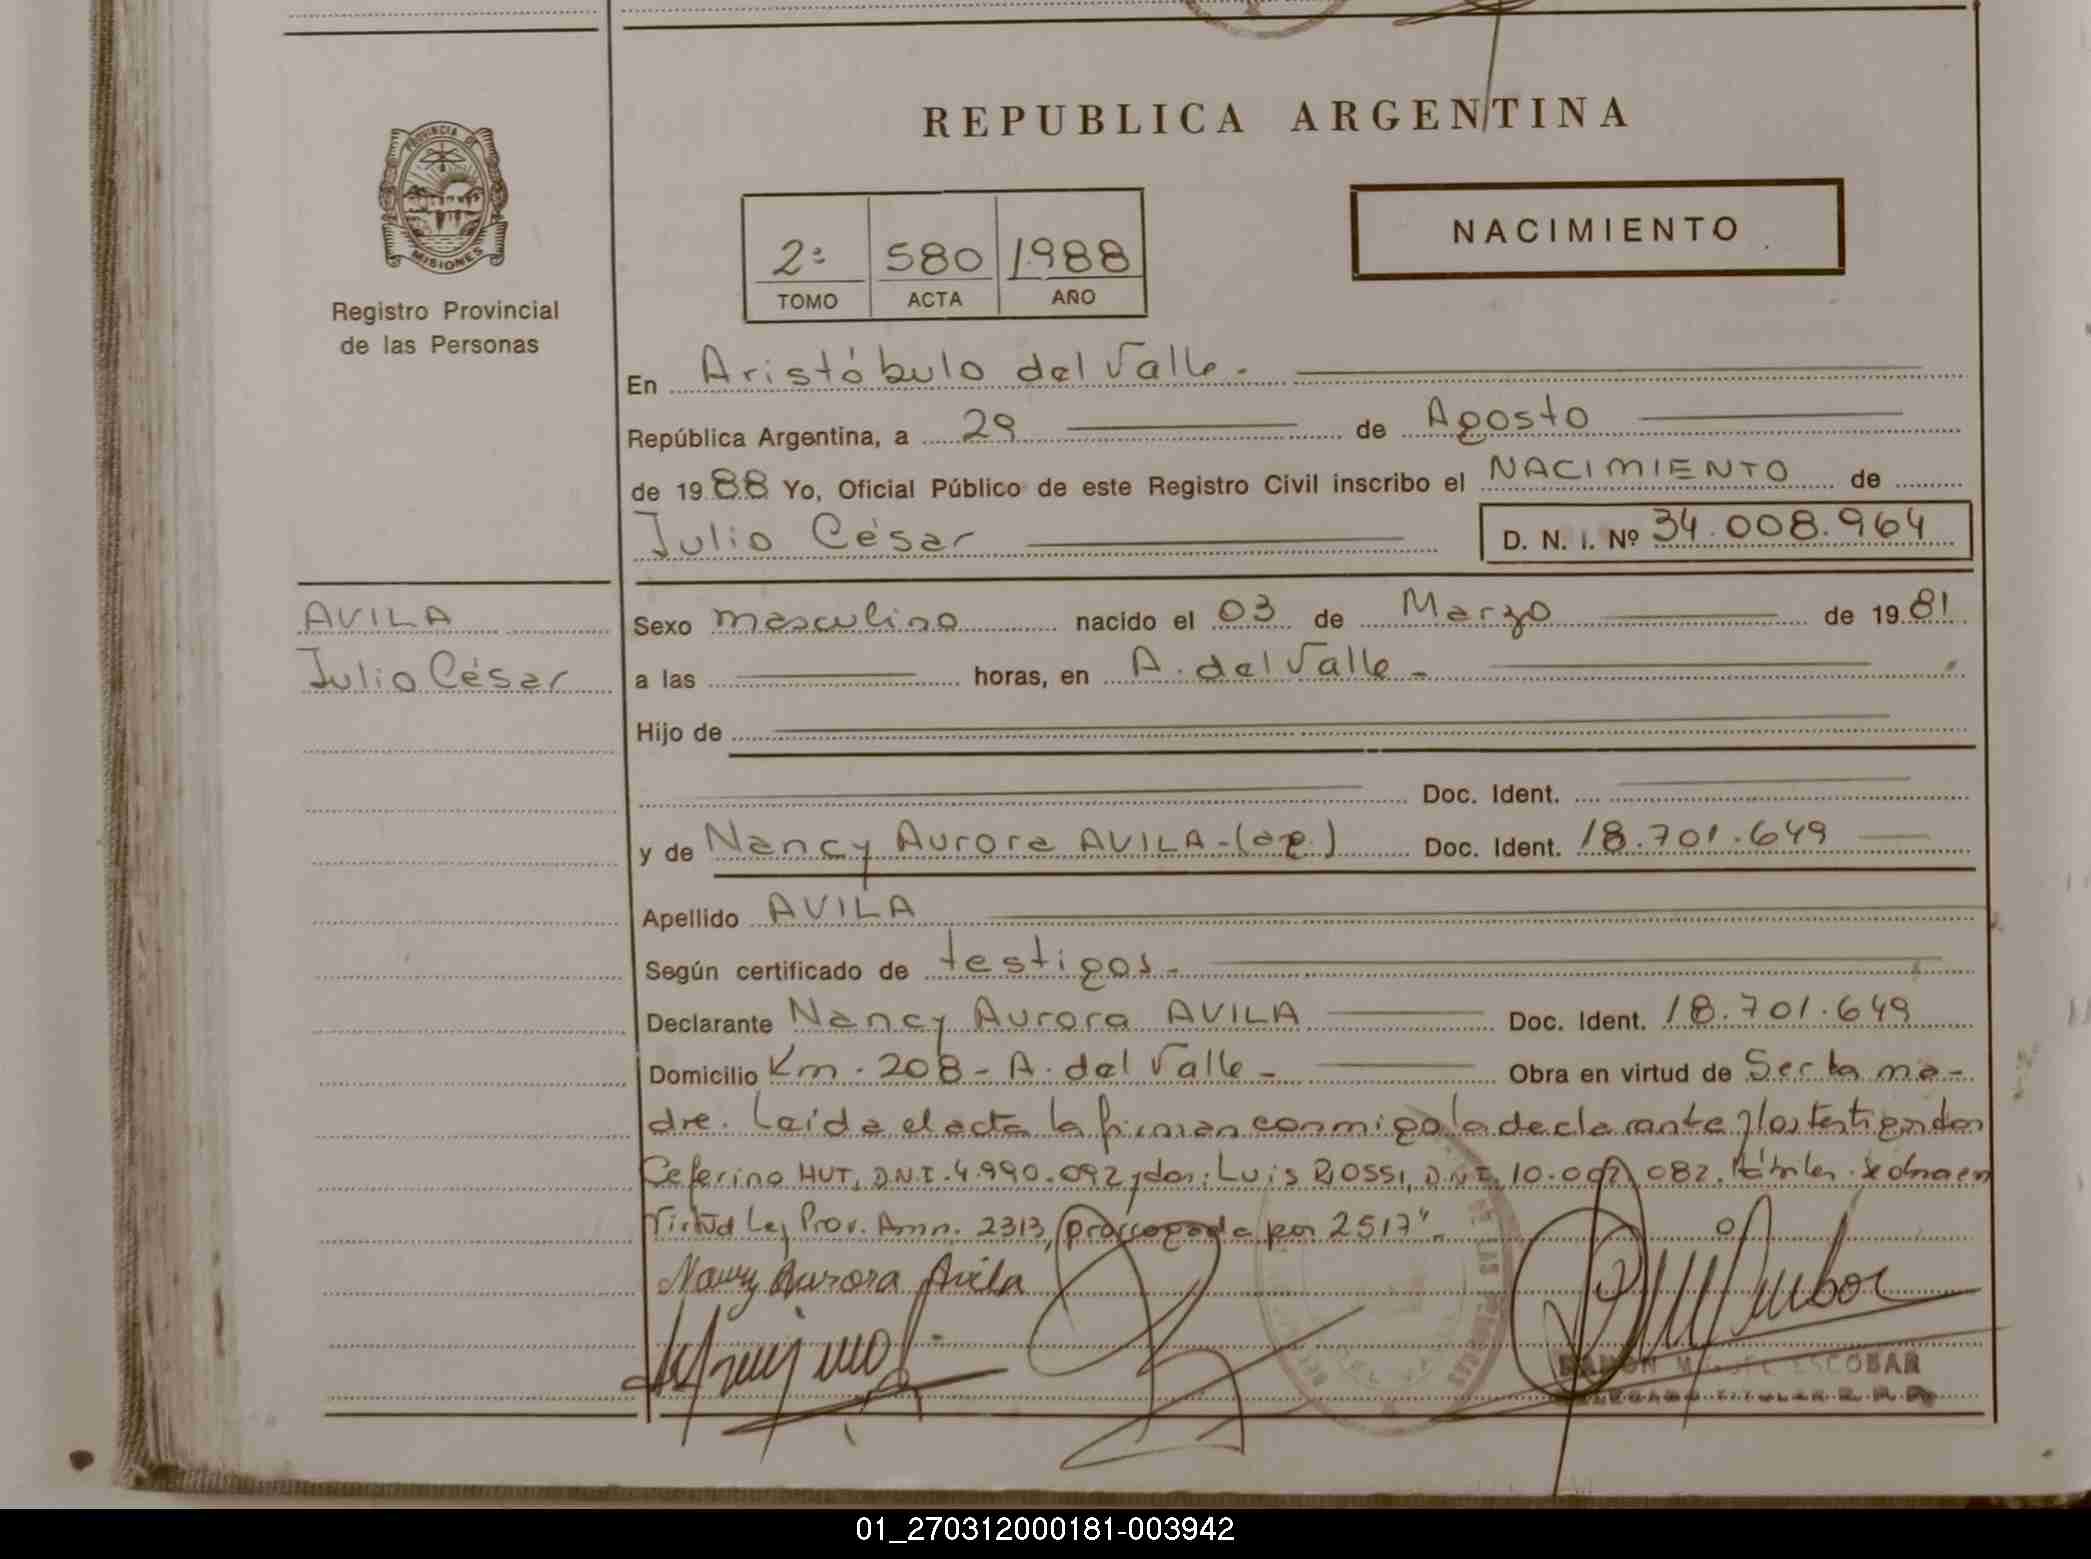 REPUBLICA ARGENTINA
PROVINCIA DE
MISIONES
Registro Provincial
de las Personas
2º 580 1988
TOMO ACTA AÑO
NACIMIENTO
En Aristóbulo del Valle.
República Argentina, a 29 de Agosto
de 1988 Yo, Oficial Público de este Registro Civil inscribo el NACIMIENTO de
Julio César D. N. I. Nº 34.008.964
AVILA
Julio César
Sexo masculino nacido el 03 de Marzo de 1981
a las horas, en A. del Valle
Hijo de
Doc. Ident.
y de Nancy Aurora AVILA-(ar.) Doc. Ident. 18.701.649
Apellido AVILA
Según certificado de testigos.
Declarante Nancy Aurora AVILA Doc. Ident. 18.701.649
Domicilio Km. 208 - A. del Valle - Obra en virtud de Ser la ma-
dre. Leída el acta la firman conmigo la declarante y los testigos don
Ceferino HUT, D.N.I. 4.990.092 y don: Luis ROSSI, D.N.I. 10.007.082. en
Virtud Ley Prov. Amn. 2313, prorrogada por 2517".
Nancy Aurora Avila
RAMON MIGUEL ESCOBAR
DELEGADO TITULAR R. P.
01_270312000181-003942